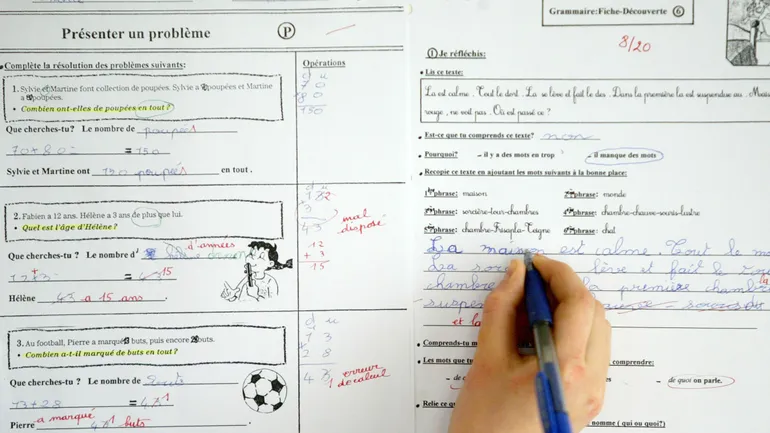 Présenter un problème
P
Complète la résolution des problèmes suivants:
Opérations
1. Sylvie et Martine font collection de poupées. Sylvie a poupées et Martine
a poupées.
Combien ont-elles de poupées en tout ?
d u
7 0
8 0
150
Que cherches-tu? Le nombre de poupées
70+80 = 150
Sylvie et Martine ont 150 poupées en tout .
2. Fabien a 12 ans. Hélène a 3 ans de plus que lui.
Quel est l'âge d'Hélène?
d u
3
43
mal
disposé
12
+ 3
15
Que cherches-tu ? Le nombre d' d'années
15
Hélène 43 a 15 ans .
3. Au football, Pierre a marqué buts, puis encore buts.
Combien a-t-il marqué de buts en tout ?
d u
1 3
2 8
erreur
de calcul
Que cherches-tu? Le nombre de buts
13+28 =
Pierre a marqué buts .
Grammaire:Fiche-Découverte 6
8/20
1 Je réfléchis:
Lis ce texte:
La est calme. Tout le dort. La se lève et fait le des. Dans la première la est suspendue au .
rouge, ne voit pas . Où est passé ce ?
Est-ce que tu comprends ce texte? non
Pourquoi? - il y a des mots en trop - il manque des mots
Recopie ce texte en ajoutant les mots suivants à la bonne place:
phrase: maison phrase: monde
phrase: sorcière-tour-chambres phrase: chambre-chauve-souris-lustre
phrase: phrase: chat
La maison est calme. Tout le
La lève et fait le
chambre la première chambre
et la
Comprends-tu
Les mots que comprendre:
- de - de quoi on parle.
Relie ce
nomme ( qui ou quoi?)